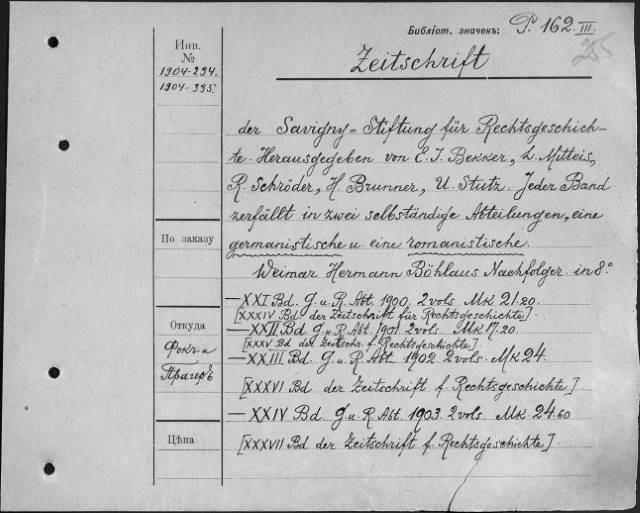 Библіот. значекъ: P. 162 III.
255
Инв.
№
1904-294.
1904-395.
Zeitschrift
der Savigny=Stiftung für Rechtsgeschich-
te. Herausgegeben von E. I. Bekker, L. Mitteis,
R. Schröder, H. Brunner, U. Stutz. Jeder Band
zerfällt in zwei selbständige Abteilungen, eine
germanistische u eine romanistische.
Weimar Hermann Böhlaus Nachfolger in 8°
По заказу
— XXI Bd. G. u. R. Abt. 1900. 2 vols Mk 21.20.
[XXXIV Bd. der Zeitschrift für Rechtsgeschichte]
— XXII Bd G. u. R Abt. 1901. 2 vols. Mk 17.20.
[XXXV Bd der Zeitschr. f. Rechtsgeschichte]
— XXIII Bd. G. u R. Abt. 1902 2 vols. Mk 24.
[XXXVI Bd der Zeitschrift f. Rechtsgeschichte]
— XXIV Bd. G. u. R Abt. 1903. 2 vols. Mk 24.60
[XXXVII Bd der Zeitschrift f. Rechtsgeschichte].
Откуда
Фокъ и
Прагеръ
Цѣна